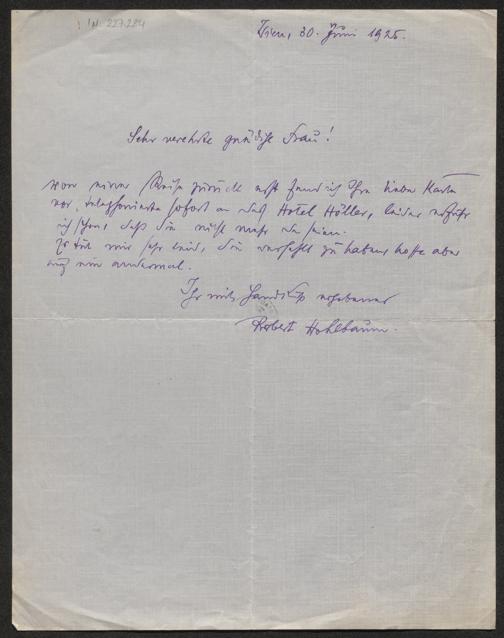 I.N. 227.284
Wien, 30. Juni 1925.
Sehr verehrte gnädige Frau!
von einer Reise zurück erst fand ich Ihre liebe Karte
vor, telephonierte sofort an das Hotel Höller, leider erfuhr
ich schon, daß Sie nicht mehr da seien.
Es tut mir sehr leid, Sie verfehlt zu haben, hoffe aber
auf ein andermal.
Ihr mit Handkuß ergebener
Robert Hohlbaum.